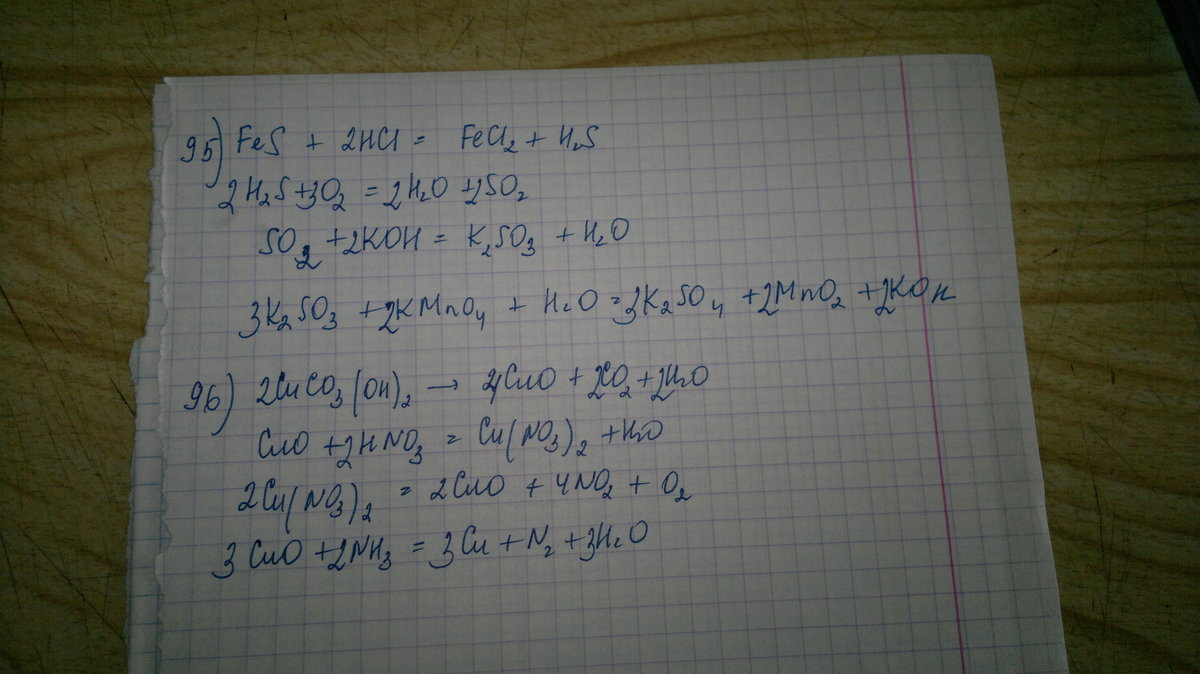 95) FeS + 2HCl = FeCl₂ + H₂S
2H₂S + 3O₂ = 2H₂O + 2SO₂
SO₂ + 2KOH = K₂SO₃ + H₂O
3K₂SO₃ + 2KMnO₄ + H₂O = 3K₂SO₄ + 2MnO₂ + 2KOH
96) 2CuCO₃(OH)₂ → 4CuO + 2CO₂ + 2H₂O
CuO + 2HNO₃ = Cu(NO₃)₂ + H₂O
2Cu(NO₃)₂ = 2CuO + 4NO₂ + O₂
3CuO + 2NH₃ = 3Cu + N₂ + 3H₂O